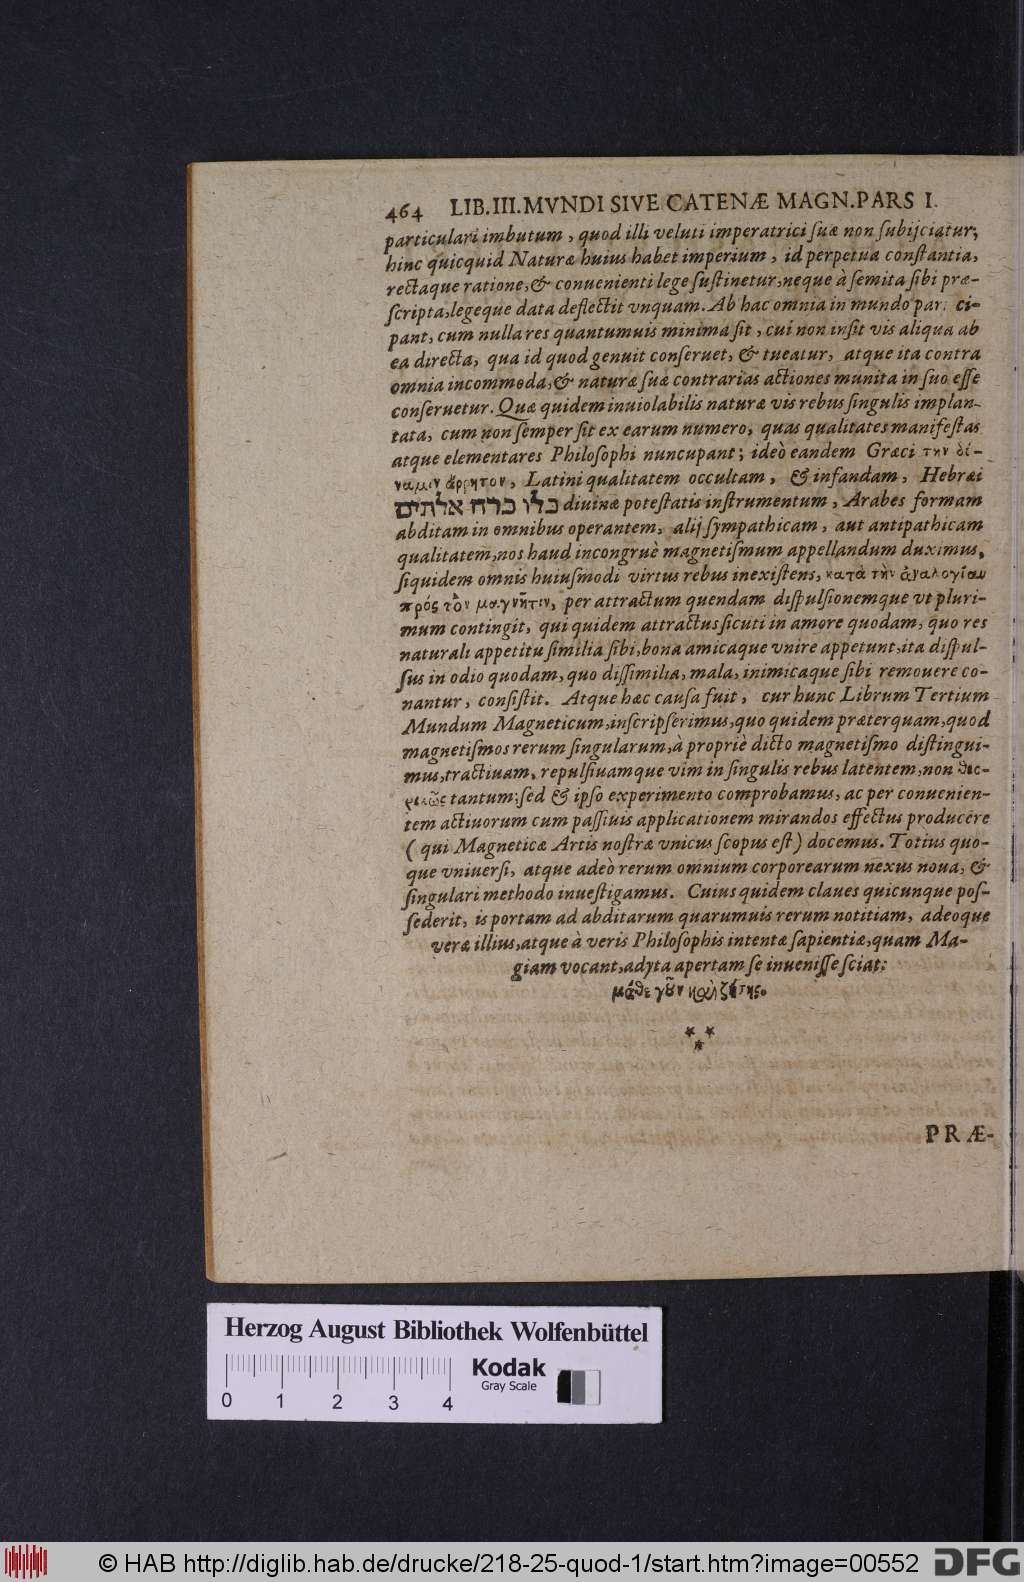 464 LIB. III. MVNDI SIVE CATENÆ MAGN. PARS I.
particulari imbutum, quod illi veluti imperatrici ſuæ non ſubijciatur;
hinc quicquid Naturæ huius habet imperium, id perpetua conſtantia,
rectaque ratione, & conuenienti lege ſuſtinetur, neque à ſemita ſibi præ-
ſcripta, legeque data deflectit vnquam. Ab hac omnia in mundo par ci-
pant, cum nulla res quantumuis minima ſit, cui non inſit vis aliqua ab
ea directa, qua id quod genuit conſeruet, & tueatur, atque ita contra
omnia incommoda, & naturæ ſuæ contrarias actiones munita in ſuo eſſe
conſeruetur. Quæ quidem inuiolabilis naturæ vis rebus ſingulis implan-
tata, cum non ſemper ſit ex earum numero, quas qualitates manifeſtas
atque elementares Philoſophi nuncupant; ideò eandem Græci την δί-
ναμιν ἄρρητον, Latini qualitatem occultam, & infandam, Hebræi
כלו כרח אלהים diuinæ poteſtatis inſtrumentum, Arabes formam
abditam in omnibus operantem, alij ſympathicam, aut antipathicam
qualitatem, nos haud incongruè magnetiſmum appellandum duximus,
ſiquidem omnis huiuſmodi virtus rebus inexiſtens, κατὰ τὴν ἀναλογίαν
πρός τὸν μαγνῆτιν, per attractum quendam diſpulſionemque vt pluri-
mum contingit, qui quidem attractus ſicuti in amore quodam, quo res
naturali appetitu ſimilia ſibi, bona amicaque vnire appetunt, ita diſpul-
ſus in odio quodam, quo diſſimilia, mala, inimicaque ſibi remouere co-
nantur, conſiſtit. Atque hæc cauſa fuit, cur hunc Librum Tertium
Mundum Magneticum, inſcripſerimus, quo quidem præterquam, quod
magnetiſmos rerum ſingularum, à propriè dicto magnetiſmo diſtingui-
mus, tractiuam, repulſiuamque vim in ſingulis rebus latentem, non θεο-
ρικῶς tantum; ſed & ipſo experimento comprobamus, ac per conuenien-
tem actiuorum cum paſſiuis applicationem mirandos effectus producere
( qui Magneticæ Artis noſtræ vnicus ſcopus eſt) docemus. Totius quo-
que vniuerſi, atque adeò rerum omnium corporearum nexus noua, &
ſingulari methodo inueſtigamus. Cuius quidem claues quicunque poſ-
ſederit, is portam ad abditarum quarumuis rerum notitiam, adeoque
veræ illius, atque à veris Philoſophis intentæ ſapientiæ, quam Ma-
giam vocant, adyta apertam ſe inueniſſe ſciat:
μάθε γοῦν
* *
*
PRÆ-
Herzog August Bibliothek Wolfenbüttel
Kodak
Gray Scale
0 1 2 3 4
© HAB http://diglib.hab.de/drucke/218-25-quod-1/start.htm?image=00552
DFG